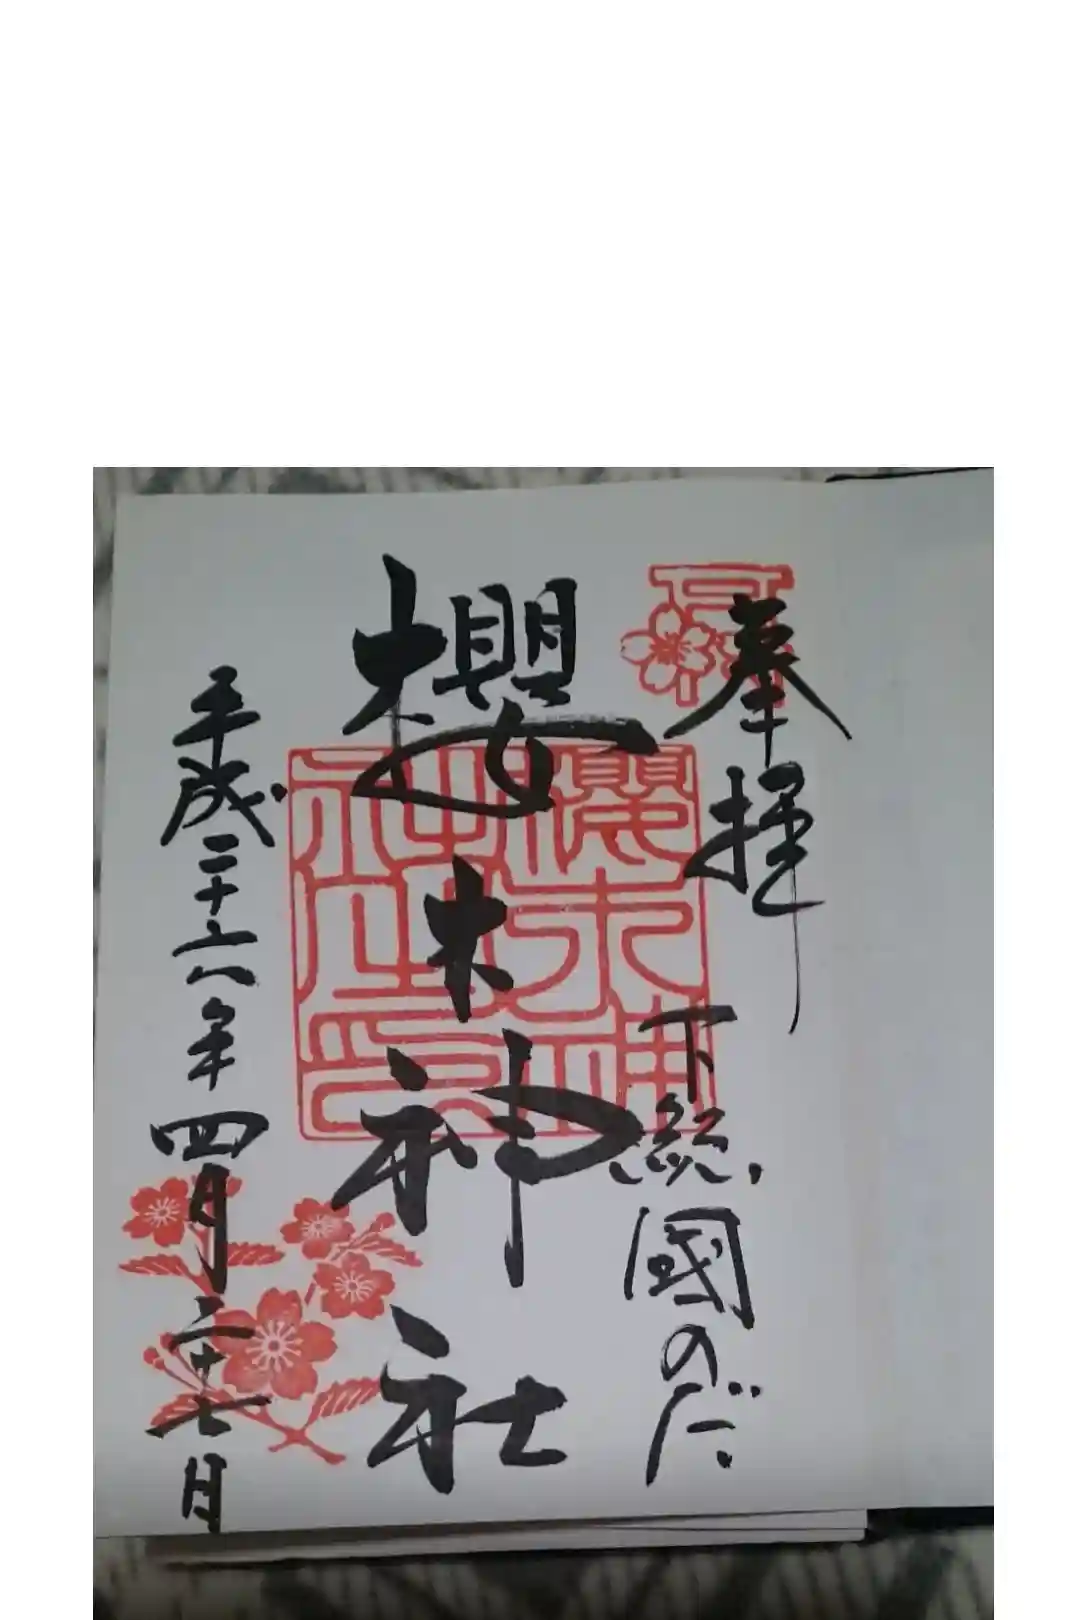 奉拝
下総國のだ
櫻木神社
櫻木神社印
平成二十六年四月二十七日